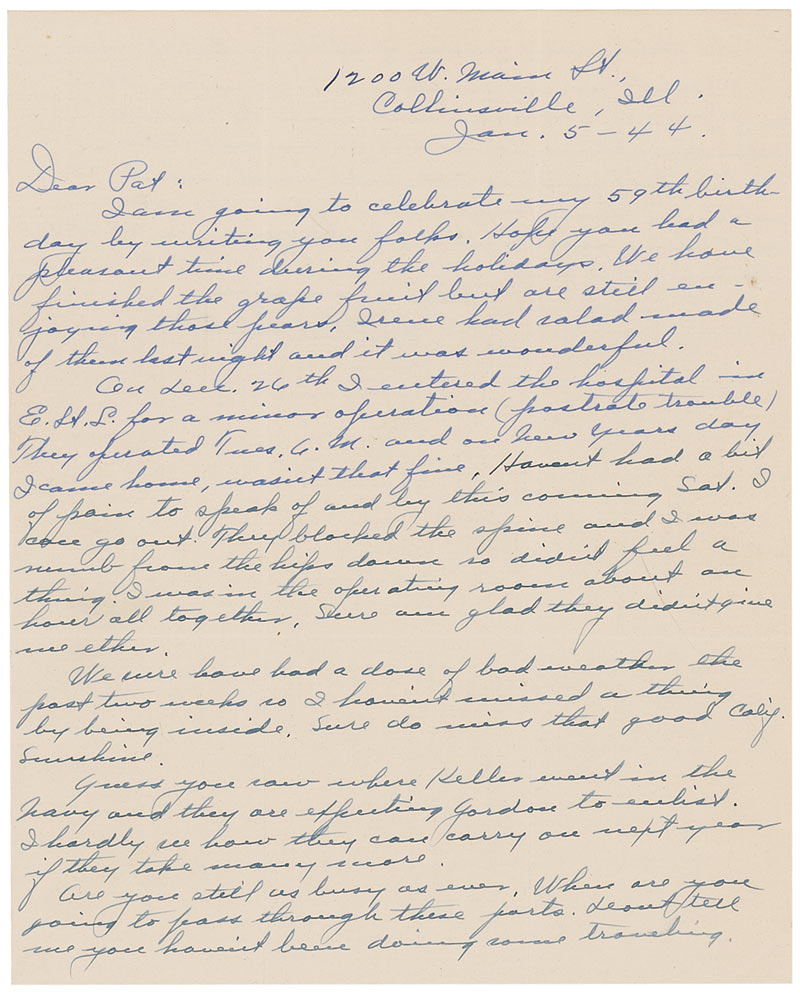 1200 W. Main St.,
Collinsville, Ill.
Jan. 5-44.
Dear Pat:
I am going to celebrate my 59th birth-
day by writing you folks. Hope you had a
pleasant time during the holidays. We have
finished the grape fruit but are still en-
joying those pears. Irene had salad made
of them last night and it was wonderful.
On Dec. 26th I entered the hospital in
E. St. L. for a minor operation (postrate trouble)
They operated Tues. A.M. and on New Years day
I came home, wasn't that fine. Haven't had a bit
of pain to speak of and by this coming Sat. I
can go out. They blocked the spine and I was
numb from the hips down so didn't feel a
thing. I was in the operating room about an
hour all together. Sure am glad they didn't give
me ether.
We sure have had a dose of bad weather the
past two weeks so I haven't missed a thing
by being inside. Sure do miss that good Calif.
Sunshine.
Guess you saw where Keller went in the
Navy and they are expecting Gordon to enlist.
I hardly see how they can carry on next year
if they take many more.
Are you still as busy as ever. When are you
going to pass through these parts. Dont tell
me you haven't been doing some traveling.